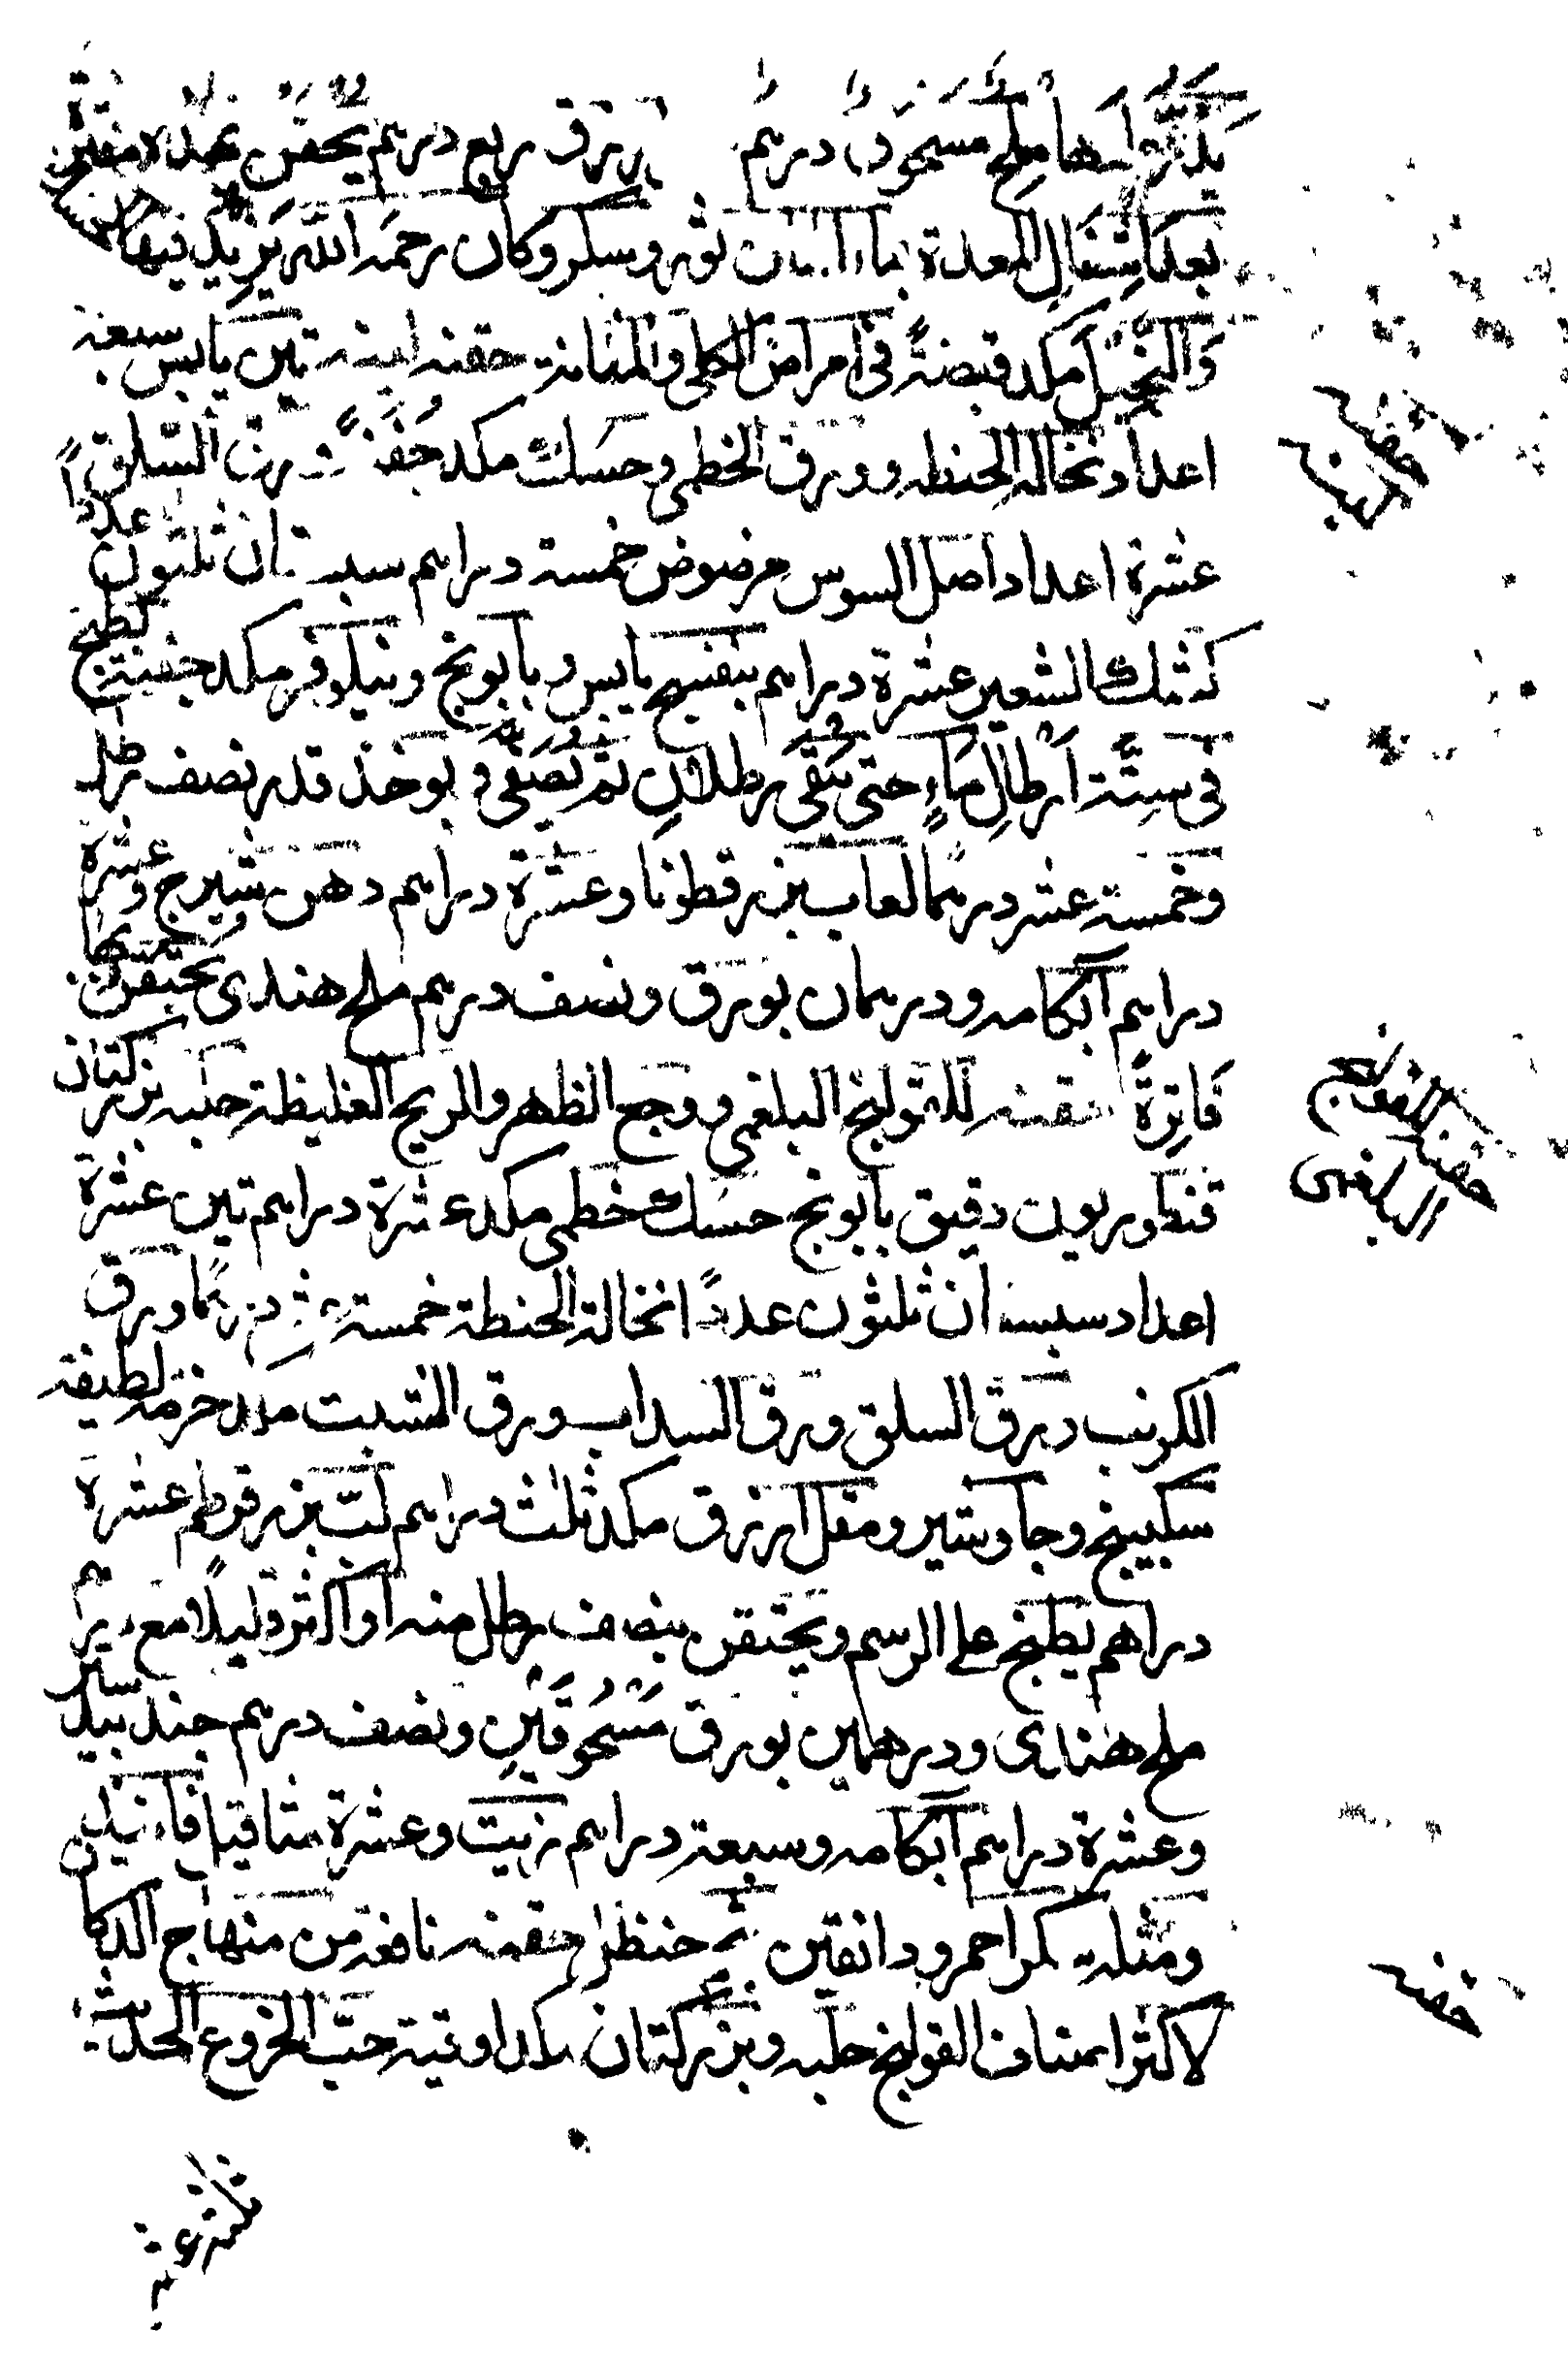 يذر عليها ملح مسحوق درهم بورق ربع درهم يحقن بهذه مفترة
بعد اشتغال المعدة بماء لسان ثور وسكر وكان رحمه الله يزيد فيها
والنجيل مكد قبضةً في امراض الكلى والمثانة حقنه لينه تين يابس سبعة
اعداد نخاله الحنطه وورق الخطمى وحسك مكد حفنةً ورق السلق
عشرة اعداد اصل السوس مرضوض خمسة دراهم سبستان ثلثون عدداً
كشك الشعير عشرة دراهم بنفسج يابس وبابونج ونيلوفر مكد حفنة يطبخ
في ستّة ارطال ماءٍ حتى يبقى رطلان ثم يصفى ويوخذ قدر نصف رطل
وخمسة عشر درهما لعاب بزرقطونا وعشرة دراهم دهن شيرج وعشرة
دراهم آبكامه ودرهمان بورق ونصف درهم ملح هندى يحتقن بها
فاترةً حقنه للقولنج البلغمى ووجع الظهر والريح الغليظة حلبه بزركتان
قنطوريون دقيق بابونج حسك خطمى مكد عشرة دراهم تين عشرة
اعداد سبستان ثلثون عدداً نخالة الحنطة خمسة عشر درهما ورق
الكرنب ورق السلق ورق السداب ورق الشبت مكد حزمه لطيفة
سكبينج وجاوشير ومقل ازرق مكد ثلث دراهم لبّ بزر قرطم عشرة
دراهم يطبخ على الرسم ويحتقن بنصف رطل منه او اكثر قليلاً مع درهم
ملح هندى ودرهمين بورق مسحوقين ونصف درهم جندبيدستر
وعشرة دراهم آبكامه وسبعة دراهم زيت وعشرة مثاقيل فانيذ
ومثله سكر احمر ودانقين شحم حنظل حقنه نافعة من منهاج الدكان
لاكثر اصناف القولنج حلبه وبزر كتان مكد اوقية حبّ الخروع الحديث
حقنه لينه
حقنه للقولنج
البلغمى
حقنه